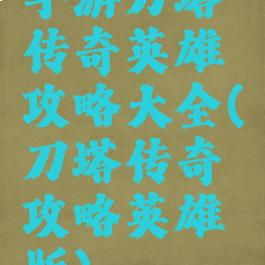 手游刀塔
传奇英雄
攻略大全(
刀塔传奇
攻略英雄
版)